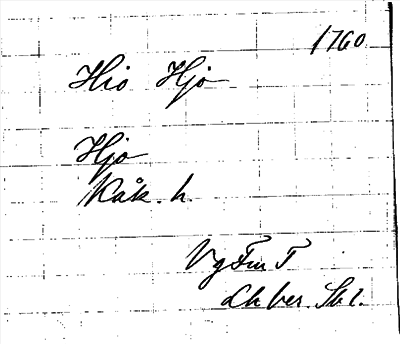 1760
Hio Hjo
Hjo
Kåk. h.
VgFmT
Lhber. Sk 1.